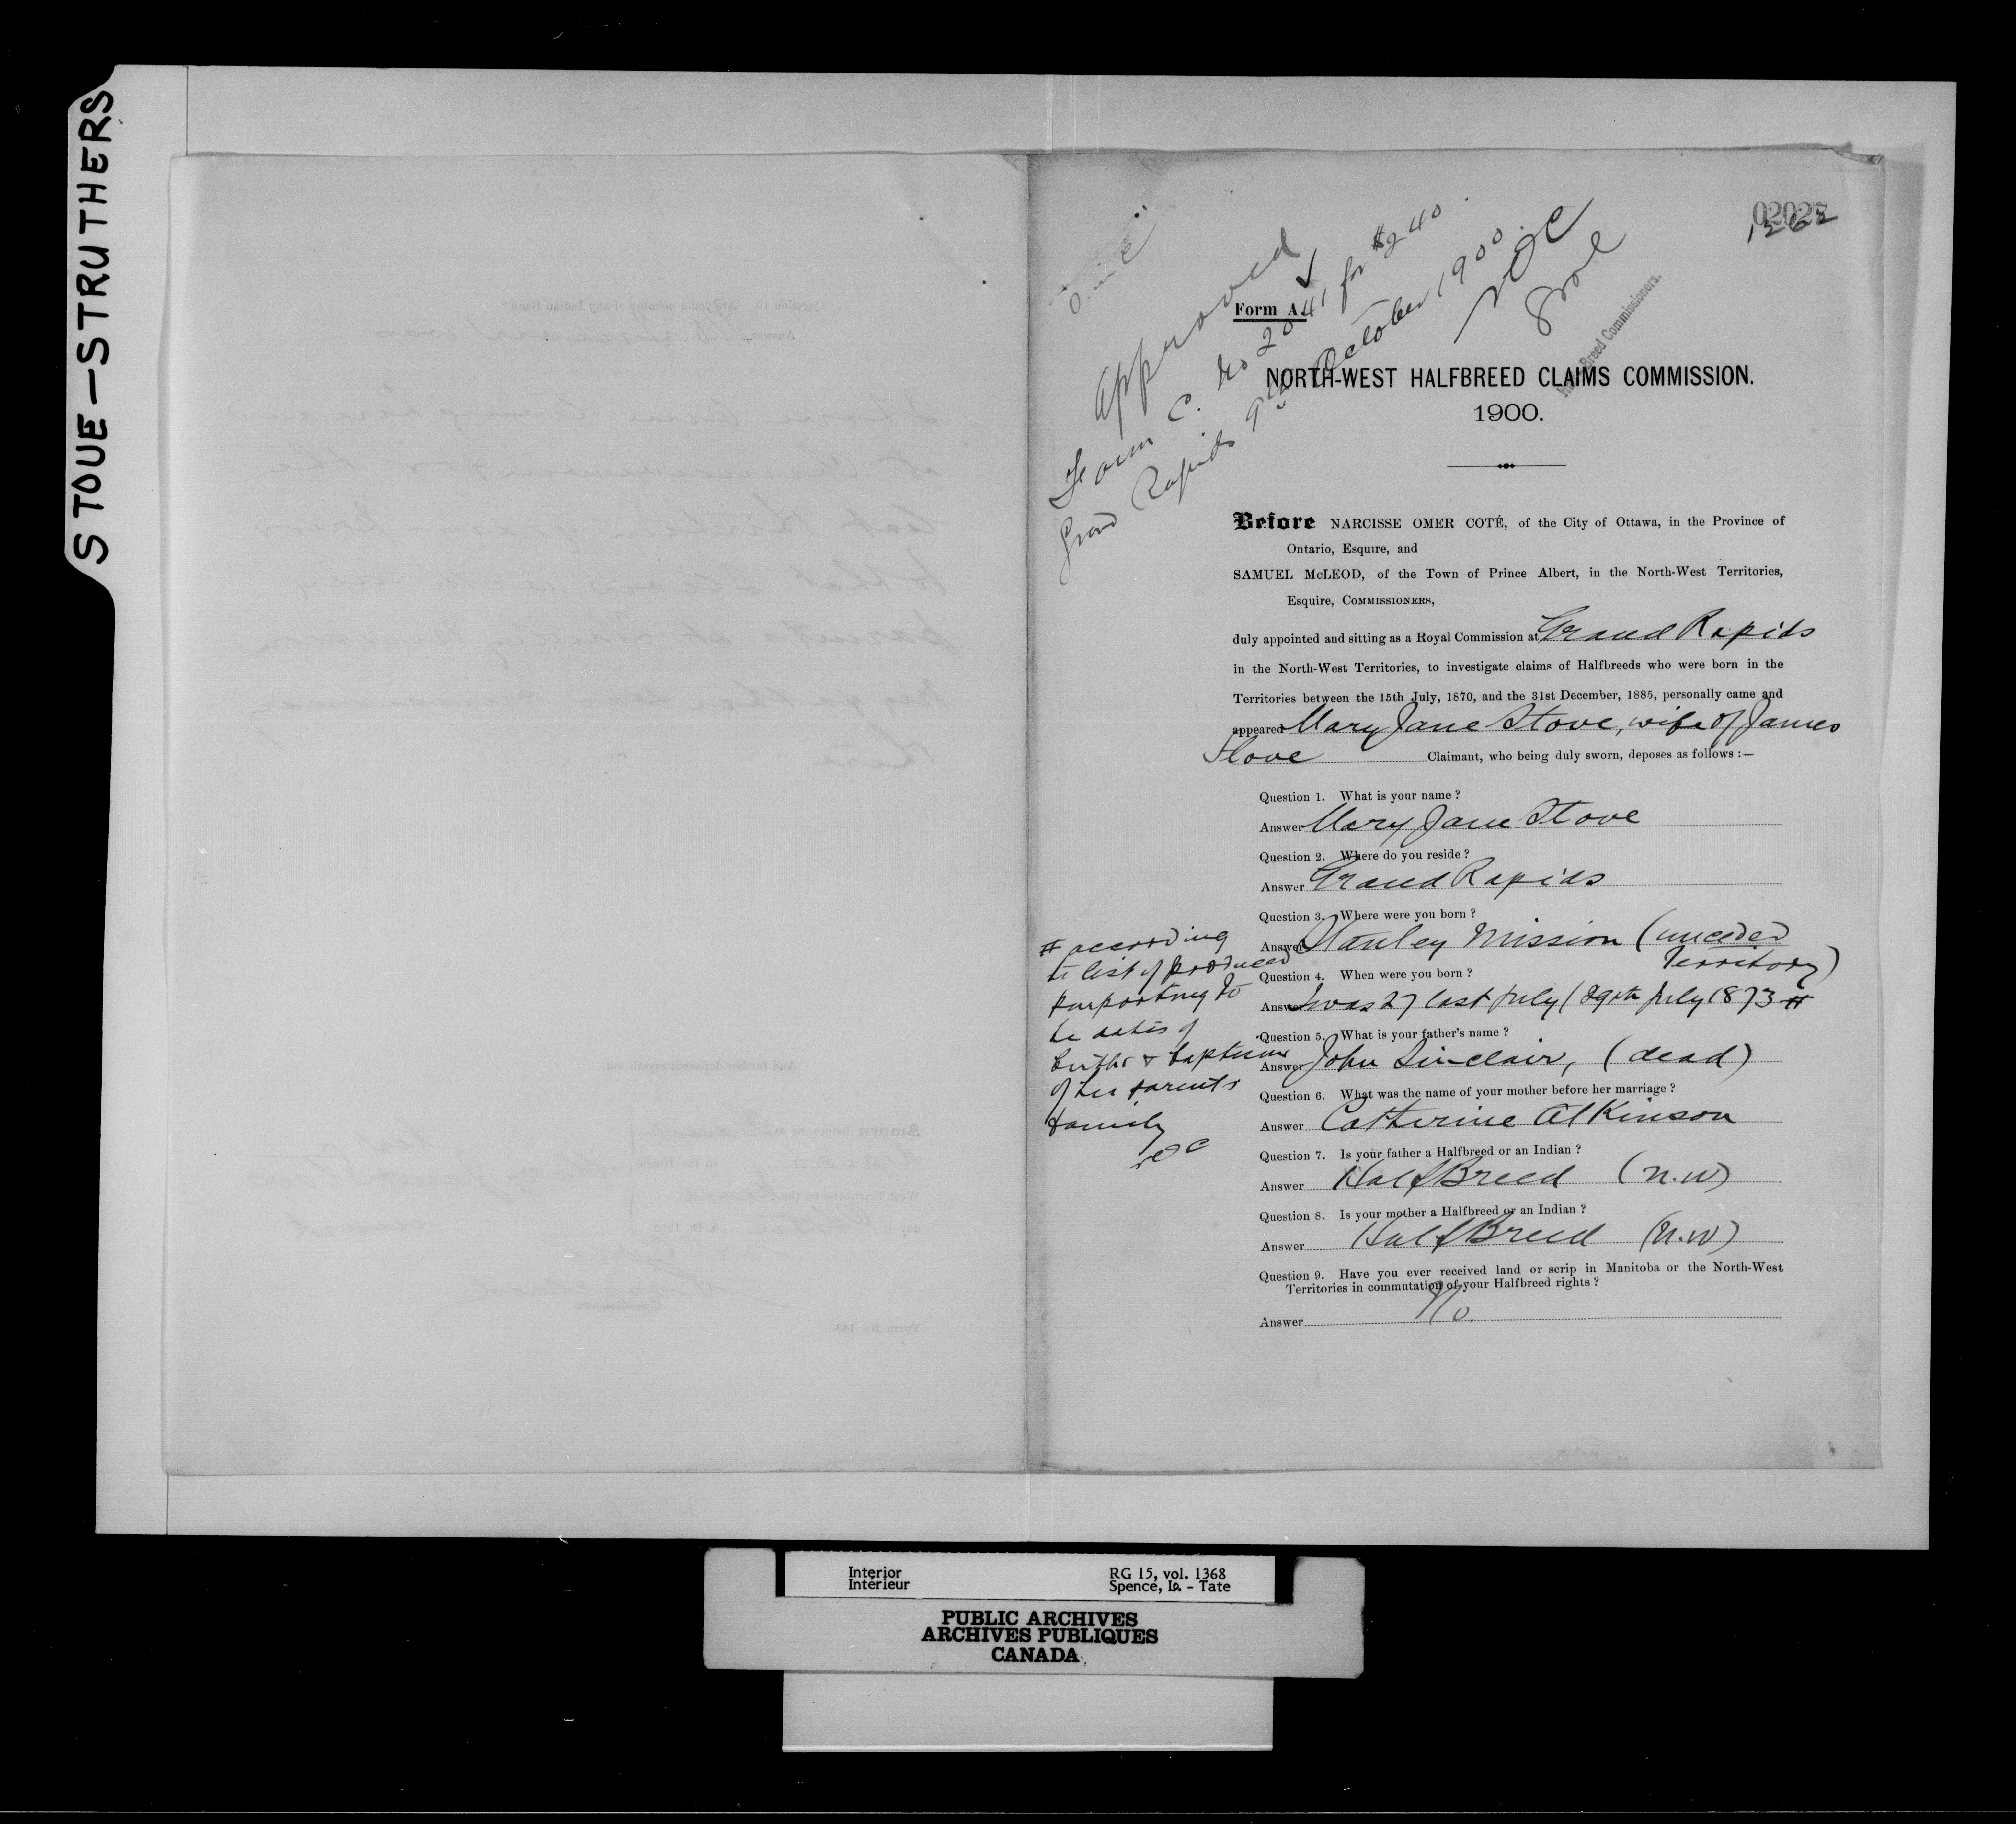 STOUE—STRUTHERS
02027
1262
Approved
Form C. No 2041 for $240
Grand Rapids 9th October 1900.
NOC
Half-Breed Commissioners.
Form A.
NORTH-WEST HALFBREED CLAIMS COMMISSION.
1900.
Before NARCISSE OMER COTÉ, of the City of Ottawa, in the Province of
Ontario, Esquire, and
SAMUEL McLEOD, of the Town of Prince Albert, in the North-West Territories,
Esquire, COMMISSIONERS,
duly appointed and sitting as a Royal Commission at Grand Rapids
in the North-West Territories, to investigate claims of Halfbreeds who were born in the
Territories between the 15th July, 1870, and the 31st December, 1885, personally came and
appeared Mary Jane Stove, wife of James
Stove Claimant, who being duly sworn, deposes as follows :—
Question 1. What is your name ?
Answer Mary Jane Stove
Question 2. Where do you reside ?
Answer Grand Rapids
Question 3. Where were you born ?
Answer Stanley Mission (unceded
Territory)
Question 4. When were you born ?
Answer I was 27 last July (29th July 1873 #
# according
to list of produced
purporting to
be dates of
births & baptisms
of her parents
family
NOC
Question 5. What is your father's name ?
Answer John Sinclair, (dead)
Question 6. What was the name of your mother before her marriage ?
Answer Catherine Atkinson
Question 7. Is your father a Halfbreed or an Indian ?
Answer HalfBreed (N.W)
Question 8. Is your mother a Halfbreed or an Indian ?
Answer HalfBreed (N.W)
Question 9. Have you ever received land or scrip in Manitoba or the North-West
Territories in commutation of your Halfbreed rights ?
Answer No.
Interior
Intérieur
RG 15, vol. 1368
Spence, Io. - Tate
PUBLIC ARCHIVES
ARCHIVES PUBLIQUES
CANADA